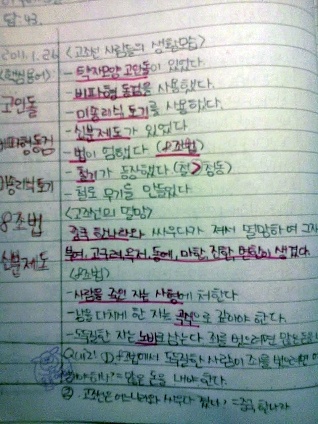 답: 43.
2011.1.26 <고조선 사람들의 생활모습>
<핵심용어> - 탁자모양 고인돌이 있었다
고인돌 - 비파형 동검을 사용했다.
- 미송리식 토기를 사용했다.
비파형동검 - 신분제도가 있었다
- 법이 엄했다 (8조법)
미송리식토기 - 철기가 등장했다 (철>청동)
- 철로 무기를 만들었다
8조법 <고조선의 멸망>
중국 한나라와 싸우다가 져서 멸망하여 그자
신분제도 부여, 고구려, 옥저, 동예, 마한, 진한, 변한이 생겼다.
<8조법>
- 사람을 죽인 자는 사형에 처한다.
- 남을 다치게 한 자는 곡식으로 갚아야 한다.
- 도둑질한 자는 노비로 삼는다 죄를 벗으려면 많은 돈을
① 도둑질한 사람이 죄를 벗으려면
많은 돈을 내야 한다.
② 고조선은 어느 나라와 싸우다 졌나? = 중국 한나라